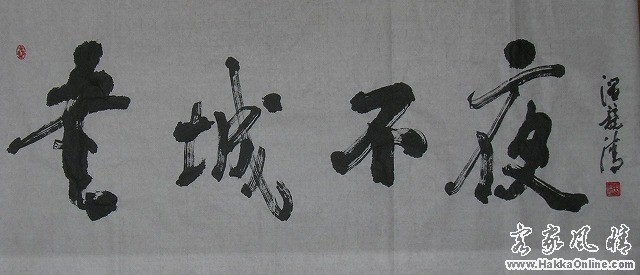 書城不夜
客家风情
www.HakkaOnline.com